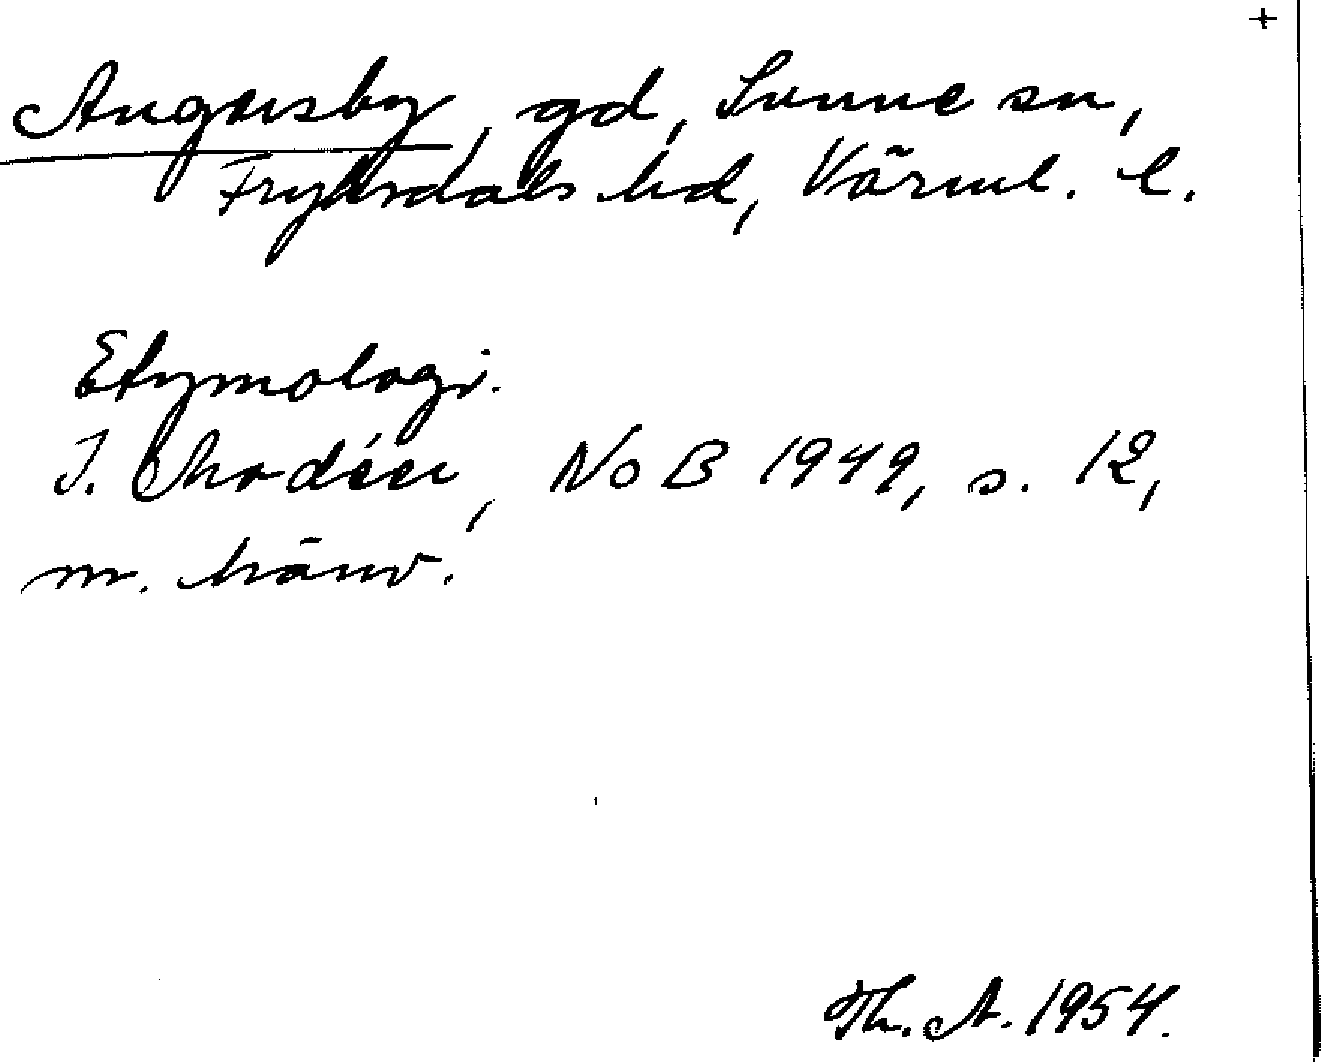 +
Angersby, gd, Sunne sn,
Fryksdals hd, Värml. l.
Etymologi.
I. Modéer, NoB 1949, s. 12,
m. hänv.
Th. A. 1954.